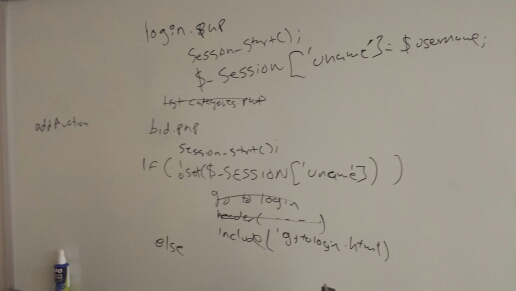 login.php
session_start();
$_SESSION['uname']=$username;
list categories.php
addAuction
bid.php
session_start();
If (isset($_SESSION['uname']))
go to login
header( - - - - )
include('gotologin.html)
else